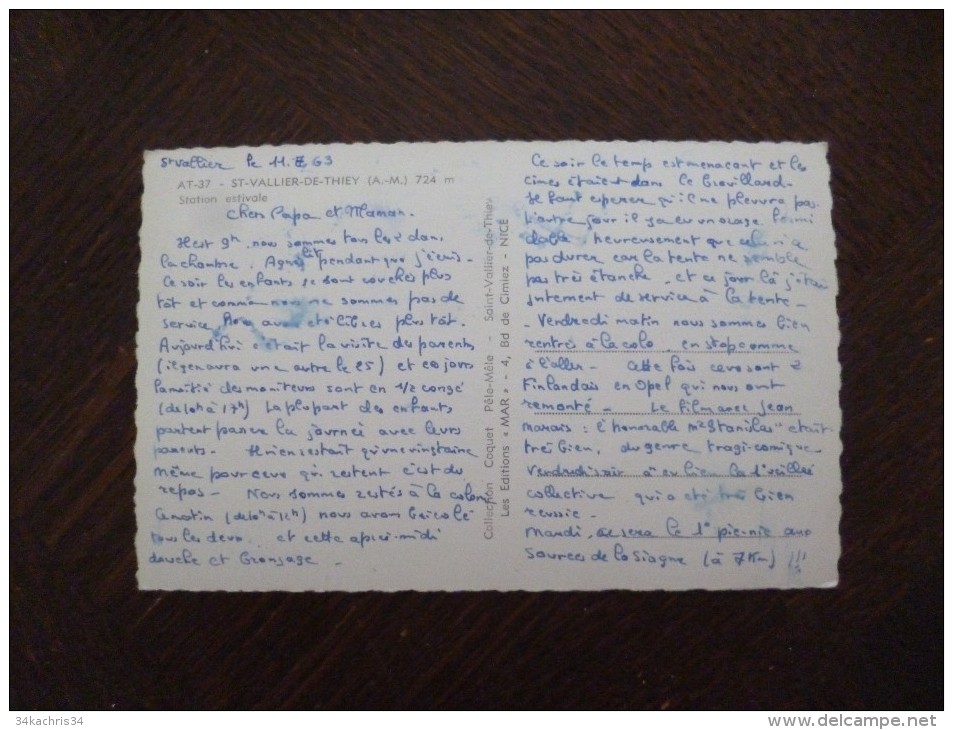 St Vallier le 11. 63
AT-37 - ST-VALLIER-DE-THIEY (A.-M.) 724 m
Station estivale
Chers Papa et Maman.
Il est 9h, nous sommes tous les 2 dans
la chambre, Agnès lit pendant que j'écris.
Ce soir les enfants se sont couchés plus
tôt et comme nous ne sommes pas de
service nous avons été libres plus tôt.
Aujourd'hui c'était la visite des parents
(il y en aura une autre le 25) et ces jours
la moitié des moniteurs sont en 1/2 congé
(de 10h à 17h) La plupart des enfants
partent passer la journée avec leurs
parents. Il n'en restait qu'une vingtaine
même pour ceux qui restent c'est du
repos - Nous sommes restés à la colonie
Ce matin (de 10h à 12h) nous avons bricolé
tous les deux et cette après-midi
douche et bronzage -
Collection Coquet Pêle-Mêle - Saint-Vallier-de-Thiey
Les Editions « MAR » - 4, Bd de Cimiez - NICE
Ce soir le temps est menaçant et les
cimes étaient dans le brouillard.
Il faut espérer qu'il ne pleuvra pas.
L'autre jour il y a eu un orage formi
dable, heureusement que cela n'a
pas duré car la tente ne semble
pas très étanche. et ce jour là j'étais
justement de service à la tente -
- Vendredi matin nous sommes bien
rentrés à la colo en stop comme
à l'aller - Cette fois ce sont 2
Finlandais en Opel qui nous ont
remonté - Le film avec Jean
Marais : l'honorable Stanislas" était
très bien, du genre tragi-comique.
Vendredi soir a eu lieu la 1° veillée
collective qui a été très bien
reussie -
Mardi, ce sera le 1° pic-nic aux
Sources de la Siagne (à 7 Km) !!!
34kachris34
www.delcampe.net